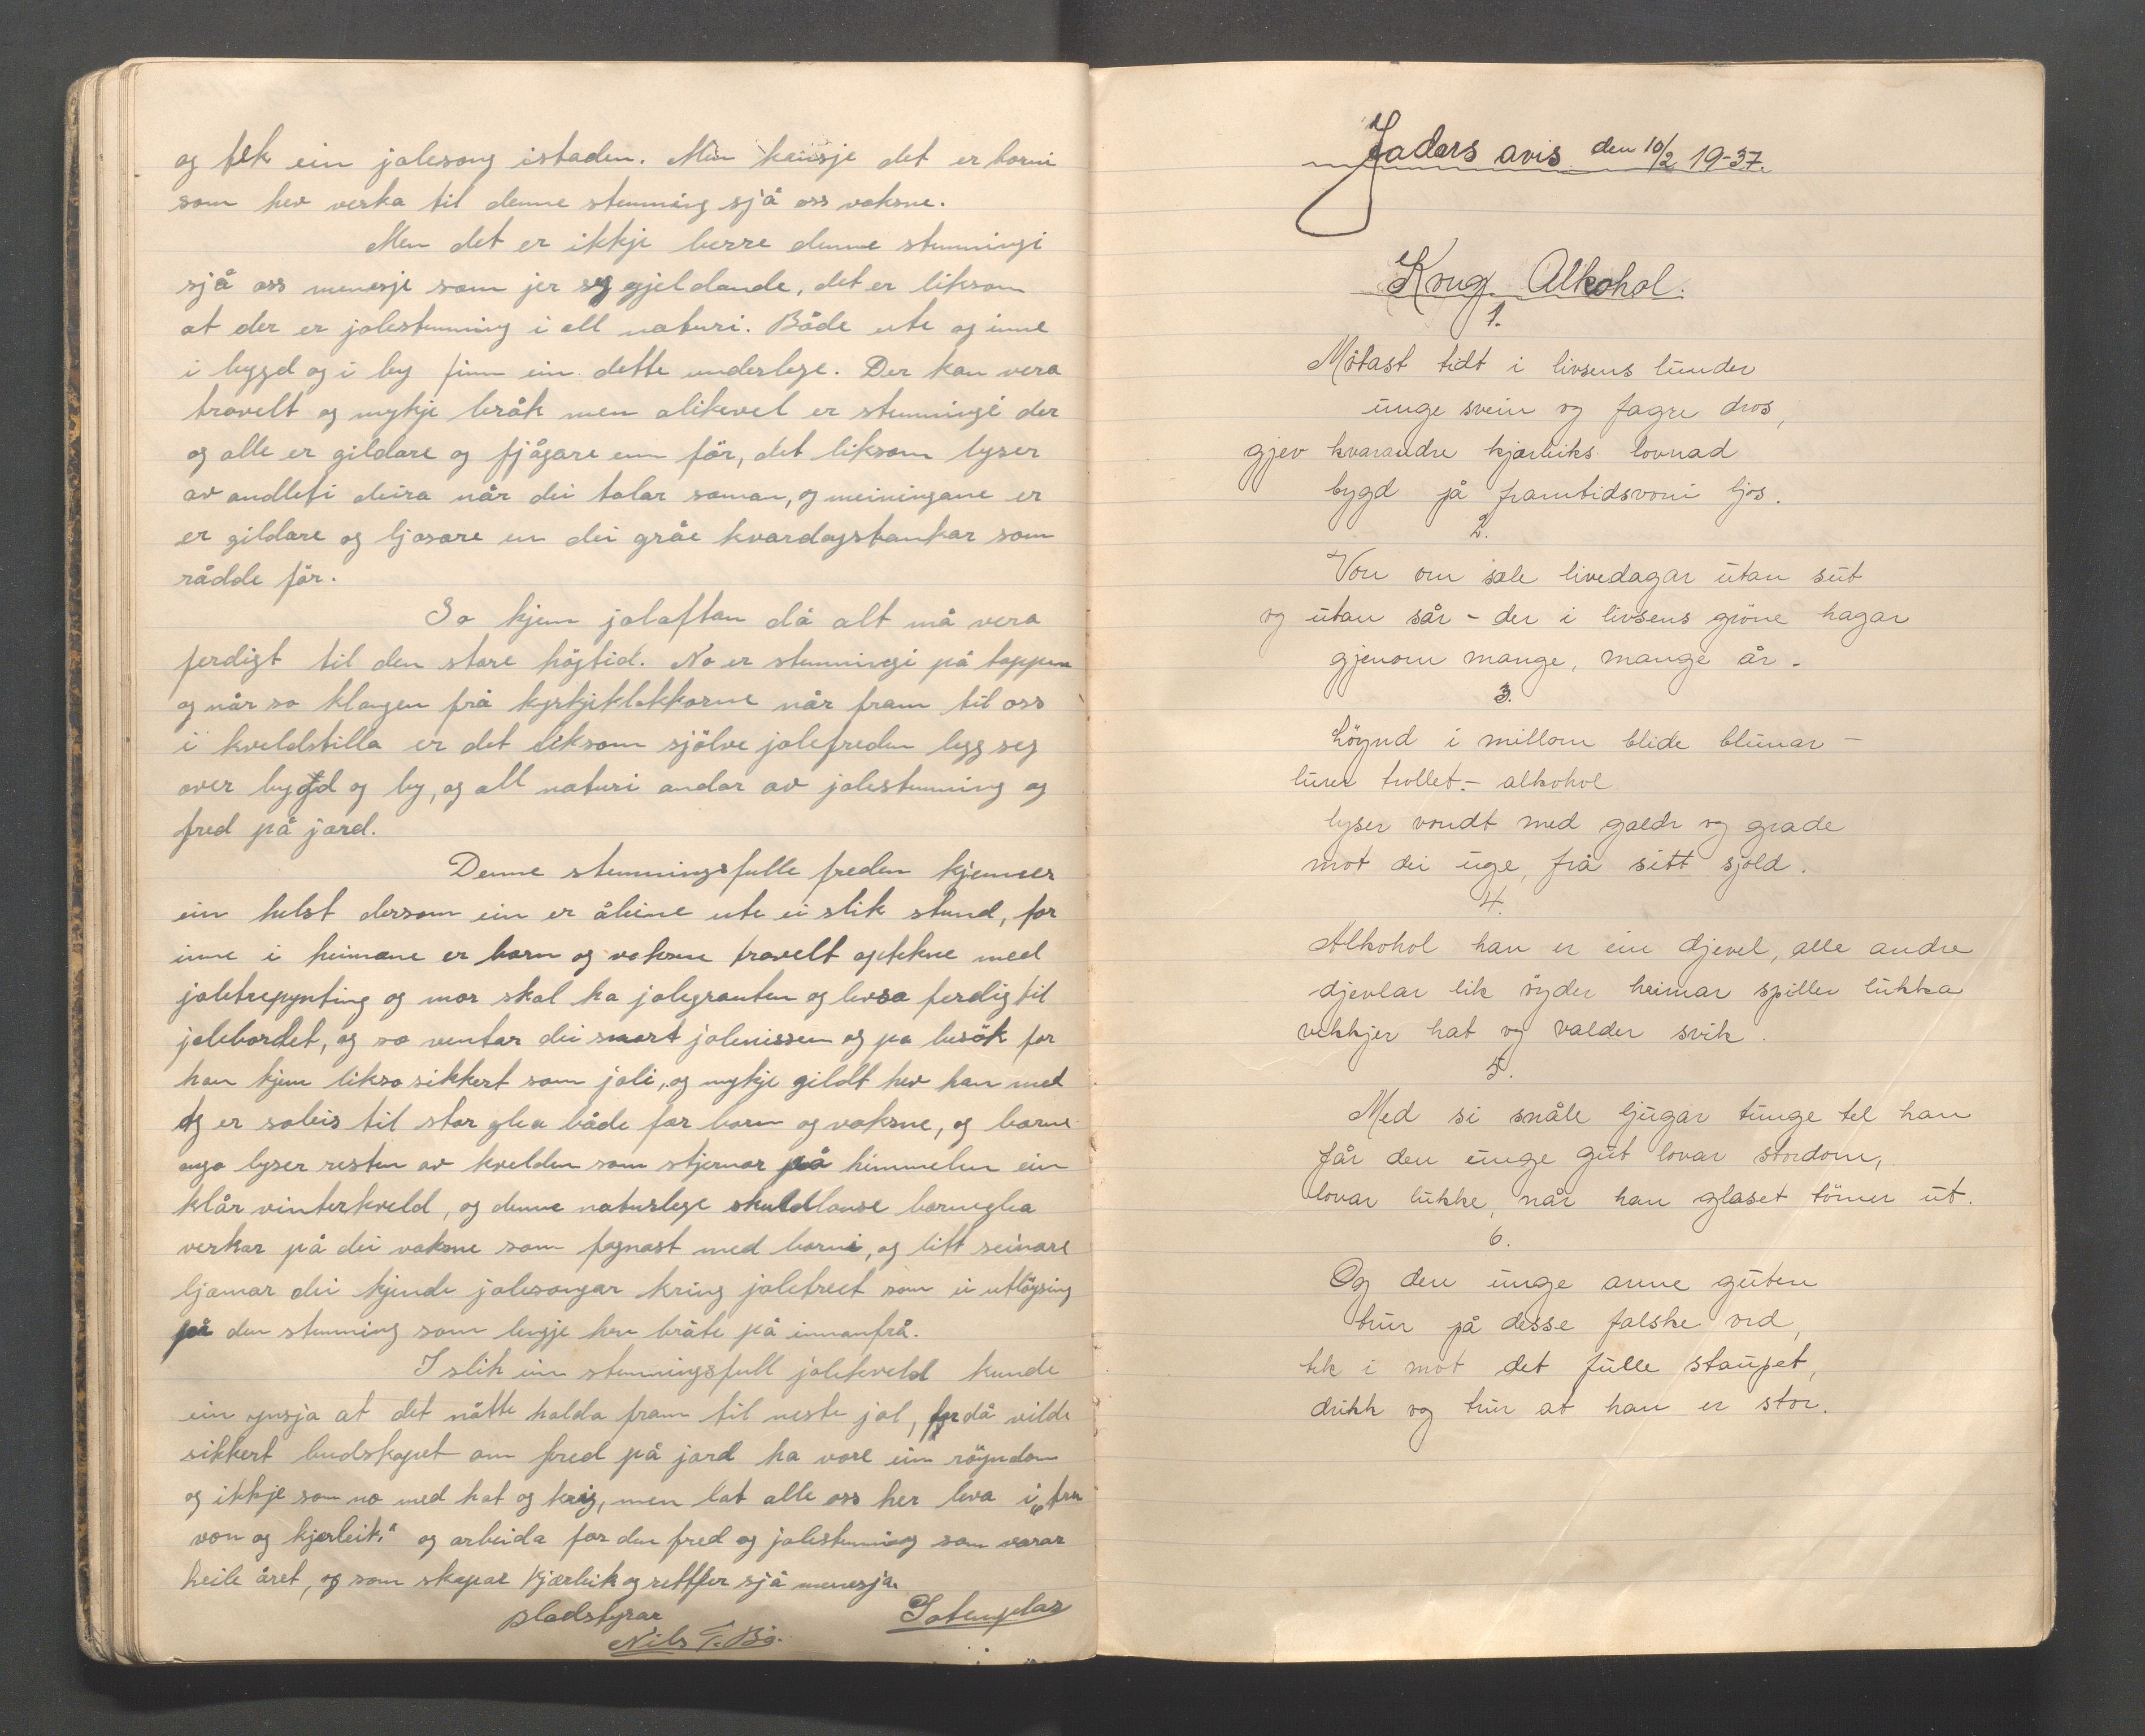 og fek ein jolesong istaden. Men kansje det er borni
som hev verka til denne stemning sjå oss voksne.
Men det er ikkje berre denne stemningi
sjå oss menesje som jer seg gjeldande, det er liksom
at der er jolestemning i all naturi. Både ute og inne
i bygd og i by finn ein dette underlege. Der kan vera
travelt og mykje bråk men alikevel er stemningi der
og alle er gildare og fjågare enn för, det liksom lyser
av andleti deira når dei talar saman, og meiningane er
er gildare og ljosare en dei gråe kvardagstankar som
rådde för.
So kjem joleftan då alt må vera
ferdigt til den store högtid. No er stemningi på toppen
og når so klangen frå kyrkjeklokkorne når fram til oss
i kveldstilla er det liksom sjölve jolefreden legg seg
over bygd og by, og all naturi andar av jolestemning og
fred på jord.
Denne stemningsfulle freden kjenner
ein helst dersom ein er åleine ute ei slik stund, for
inne i heimane er born og voksne travelt optekne med
joletrepynting og mor skal ha jolegrauten og levsa ferdig til
jolebordet, og so ventar dei snart jolenissen og pa besök for
han kjem likso sikkert som joli, og mykje gildt hev han med
og er soleis til stor glea både for born og voksne, og borne
augo lyser resten av kvelden som stjernor på himmelen ein
klår vinterkveld, og denne naturlege skuldlause barneglea
verkar på dei voksne som fagnast med borni, og litt seinare
ljomar dei kjende jolesongar kring joletreet som ei utlöysing
på den stemning som lengje hev bråte på innanfrå.
I slik ein stemningsfull jolekveld kunde
ein ynsja at det måtte halda fram til neste jol, for då vilde
sikkert budskapet om fred på jord ha vore ein röyndom
og ikkje som no med hat og krig, men lat alle oss her leva i "tru
von og kjærleik" og arbeida for den fred og jolestemning som varar
heile året, og som skapar kjærleik og rettfer sjå menesja.
Bladstyrar
Nils T. Bö.
Jotemplar
Jadars avis den 10/2 19-37.
Kong Alkohol.
1.
Mötast tidt i livsens lunder
unge svein og fagre dros,
gjev kvarandre kjærleiks lovnad
bygd på framtidsvoni ljos.
2.
Von om sæle livedagar utan sut
og utan sår - der i livsens gröne hagar
gjenom mange, mange år.
3.
Löynd i millom blide blumar -
lurer trollet - alkohol
lyser vondt med galdr og grade
mot dei uge, frå sitt sjold.
4.
Alkohol han er ein djevel, alle andre
djevlar lik öyder heimar spiller lukka
vekkjer hat og valder svik.
5.
Med si snåle ljugar tunge tel han
får den unge gut lovar stordom,
lovar lukke, når han glaset tömer ut.
6.
Og den unge arme guten
trur på desse falske ord,
tek i mot det fulle staupet,
drikk og trur at han er stor.